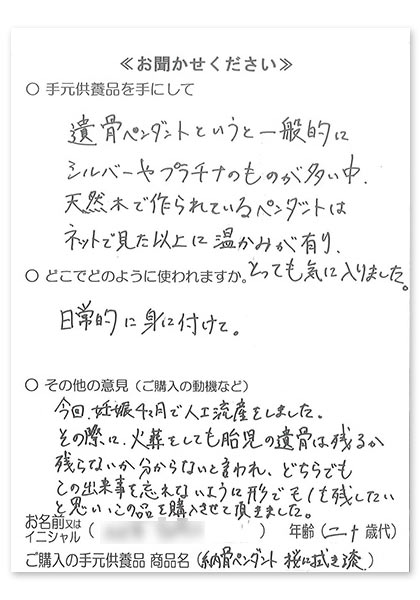 ≪お聞かせください≫
○ 手元供養品を手にして
遺骨ペンダントというと一般的に
シルバーやプラチナのものが多い中、
天然木で作られているペンダントは
ネットで見た以上に温かみが有り、
とっても気に入りました。
○ どこでどのように使われますか。
日常的に身に付けて。
○ その他の意見（ご購入の動機など）
今回、妊娠4ヶ月で人工流産をしました。
その際に、火葬をしても胎児の遺骨は残るか
残らないか分からないと言われ、どちらでも
この出来事を忘れないように形でも1も残したい
と思い、この品を購入させて頂きました。
お名前又は
イニシャル （ ） 年齢（二十歳代）
ご購入の手元供養品 商品名（納骨ペンダント 桜に拭き漆）